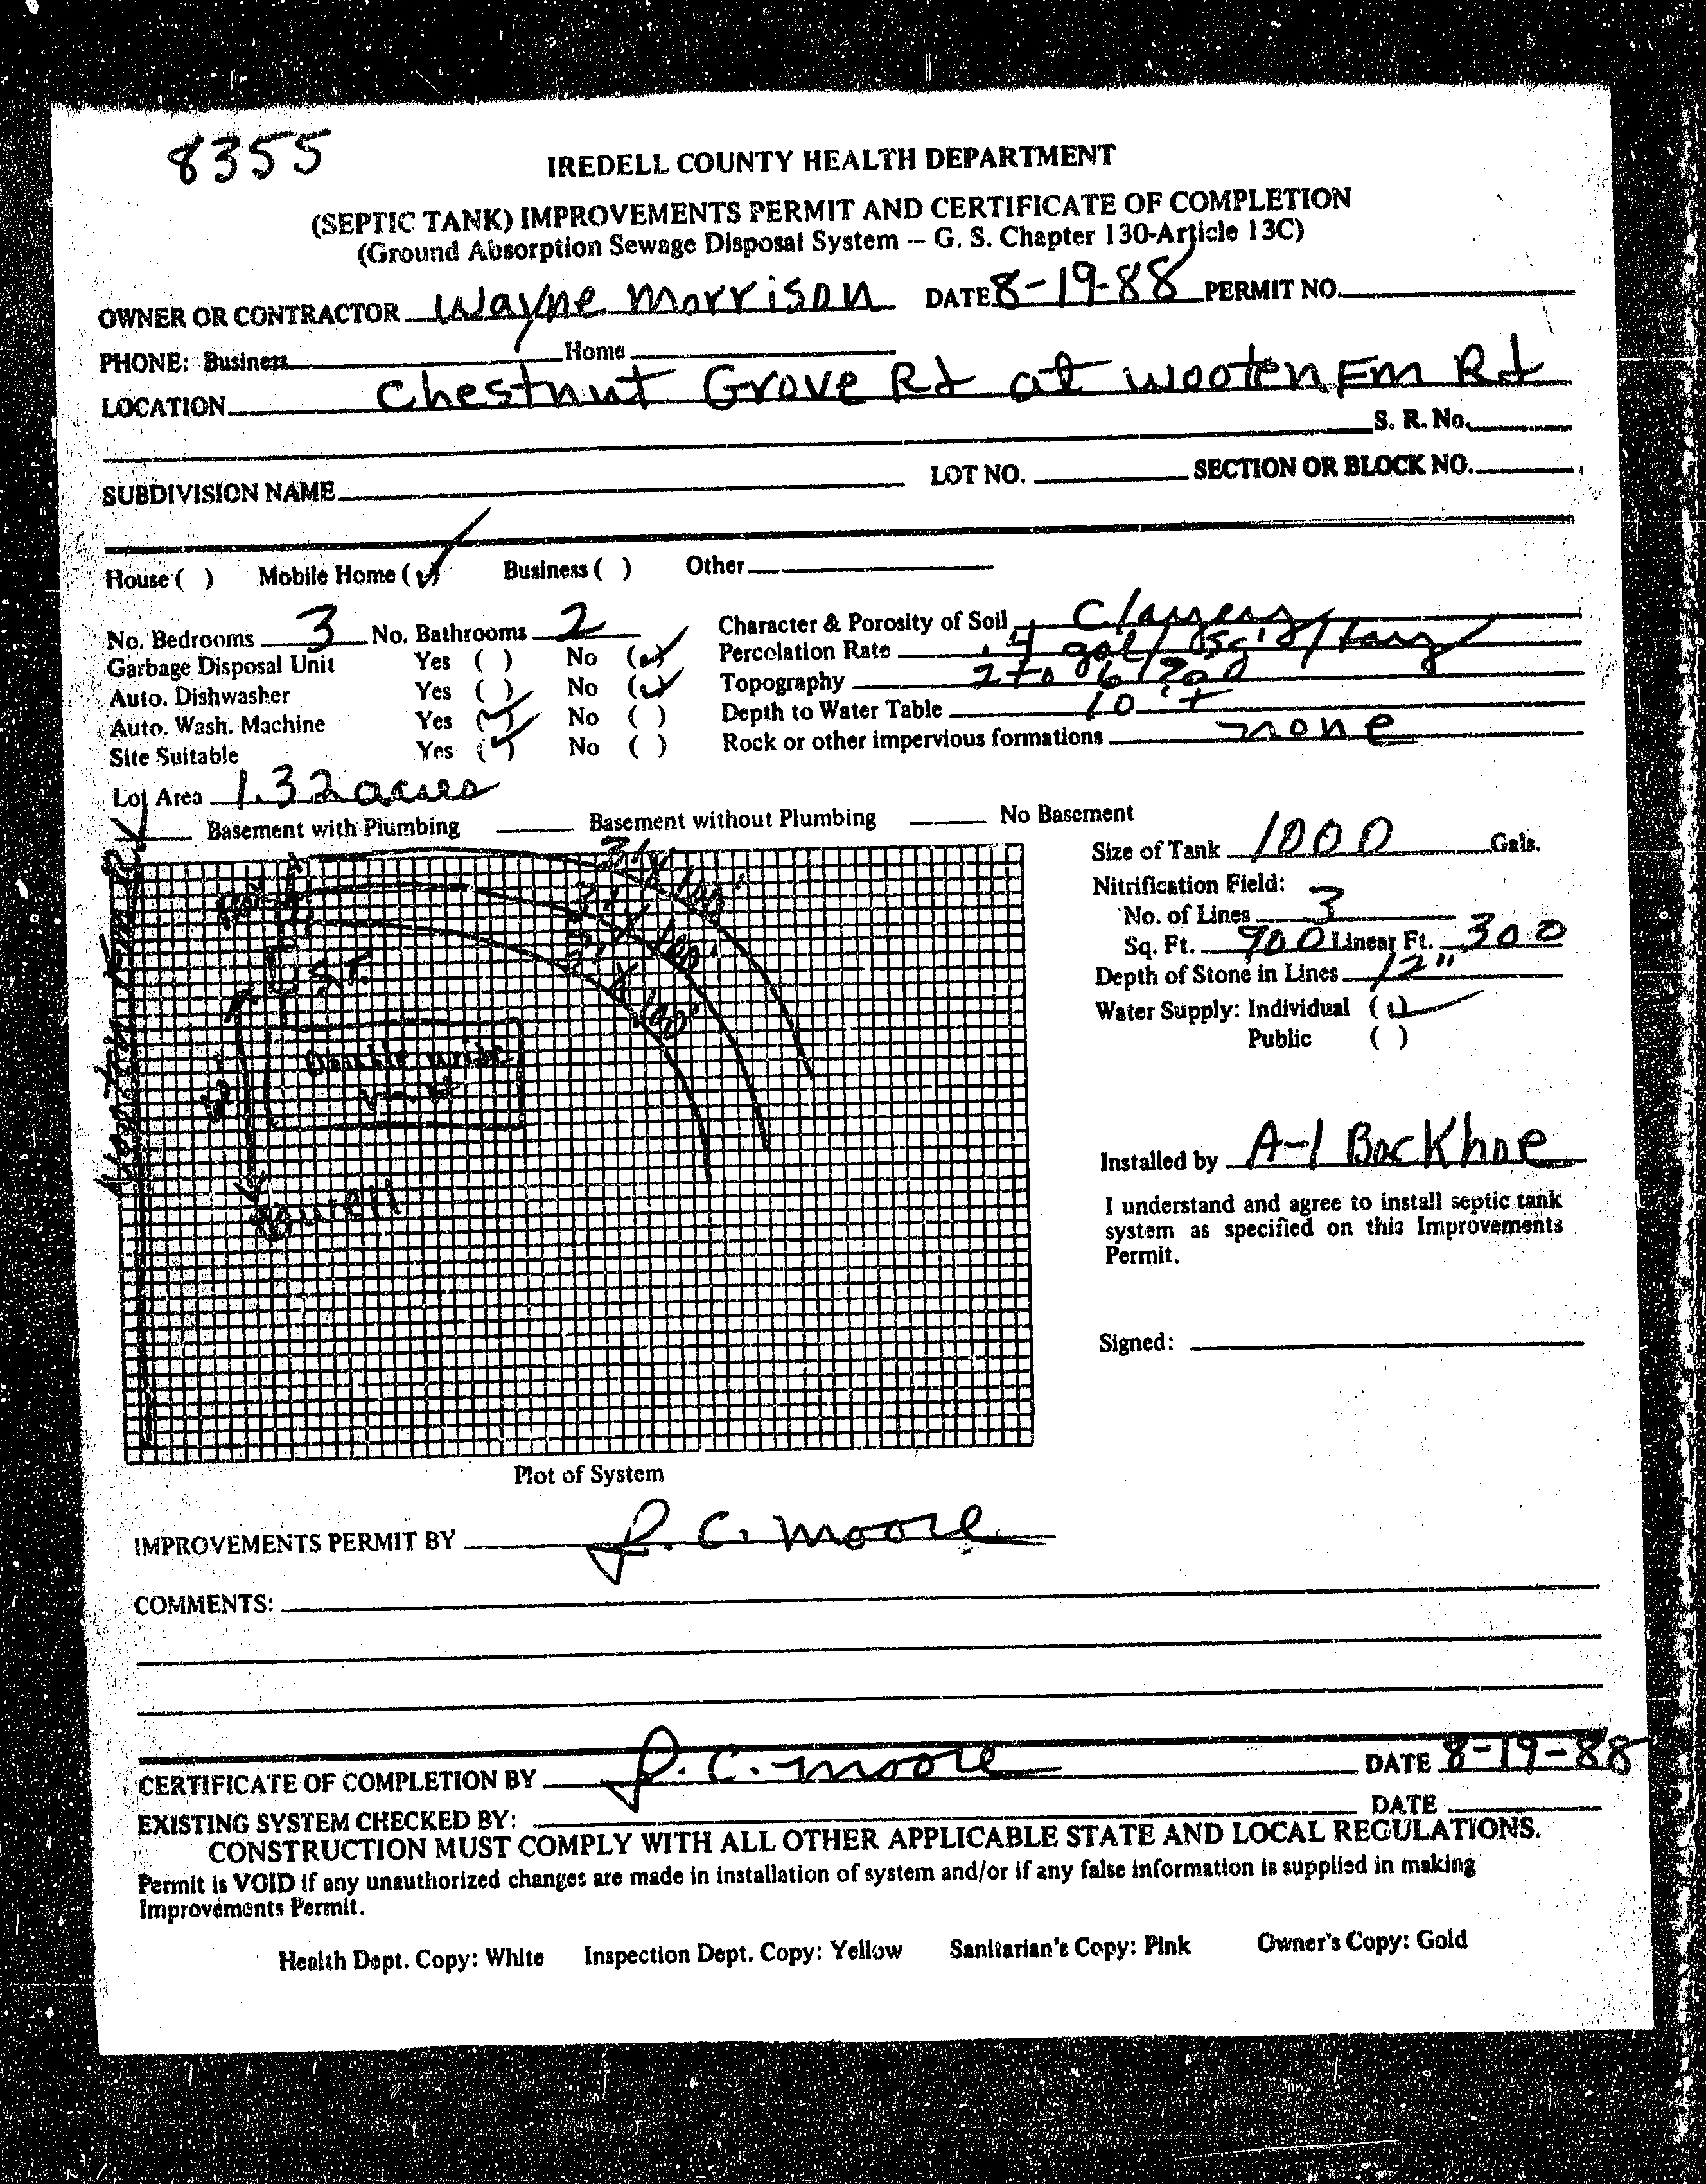 8355
IREDELL COUNTY HEALTH DEPARTMENT
(SEPTIC TANK) IMPROVEMENTS PERMIT AND CERTIFICATE OF COMPLETION
(Ground Absorption Sewage Disposal System -- G. S. Chapter 130-Article 13C)
OWNER OR CONTRACTOR Wayne Morrison DATE 8-19-88 PERMIT NO.
PHONE: Business Home
LOCATION Chestnut Grove Rd at Wooten Fm Rd
S. R. No.
SUBDIVISION NAME LOT NO. SECTION OR BLOCK NO.
House ( ) Mobile Home (✓) Business ( ) Other
No. Bedrooms 3 No. Bathrooms 2 Character & Porosity of Soil Clayey
Garbage Disposal Unit Yes ( ) No (✓) Percolation Rate .4 gal/
Auto. Dishwasher Yes ( ) No (✓) Topography 2 to 6
Auto. Wash. Machine Yes (✓) No ( ) Depth to Water Table 10 +
Site Suitable Yes (✓) No ( ) Rock or other impervious formations none
Lot Area 1.32 acres
Basement with Plumbing Basement without Plumbing No Basement
Size of Tank 1000 Gals.
Nitrification Field:
No. of Lines 3
Sq. Ft. 900 Linear Ft. 300
Depth of Stone in Lines 12"
Water Supply: Individual (✓)
Public ( )
3' X 100'
3' X 100'
3' X 100'
S.T.
Double wide
well
Wooten Fm Rd
Installed by A-1 Backhoe
I understand and agree to install septic tank
system as specified on this Improvements
Permit.
Signed:
Plot of System
IMPROVEMENTS PERMIT BY J. C. Moore
COMMENTS:
CERTIFICATE OF COMPLETION BY J. C. Moore DATE 8-19-88
EXISTING SYSTEM CHECKED BY: DATE
CONSTRUCTION MUST COMPLY WITH ALL OTHER APPLICABLE STATE AND LOCAL REGULATIONS.
Permit is VOID if any unauthorized changes are made in installation of system and/or if any false information is supplied in making
Improvements Permit.
Health Dept. Copy: White Inspection Dept. Copy: Yellow Sanitarian's Copy: Pink Owner's Copy: Gold